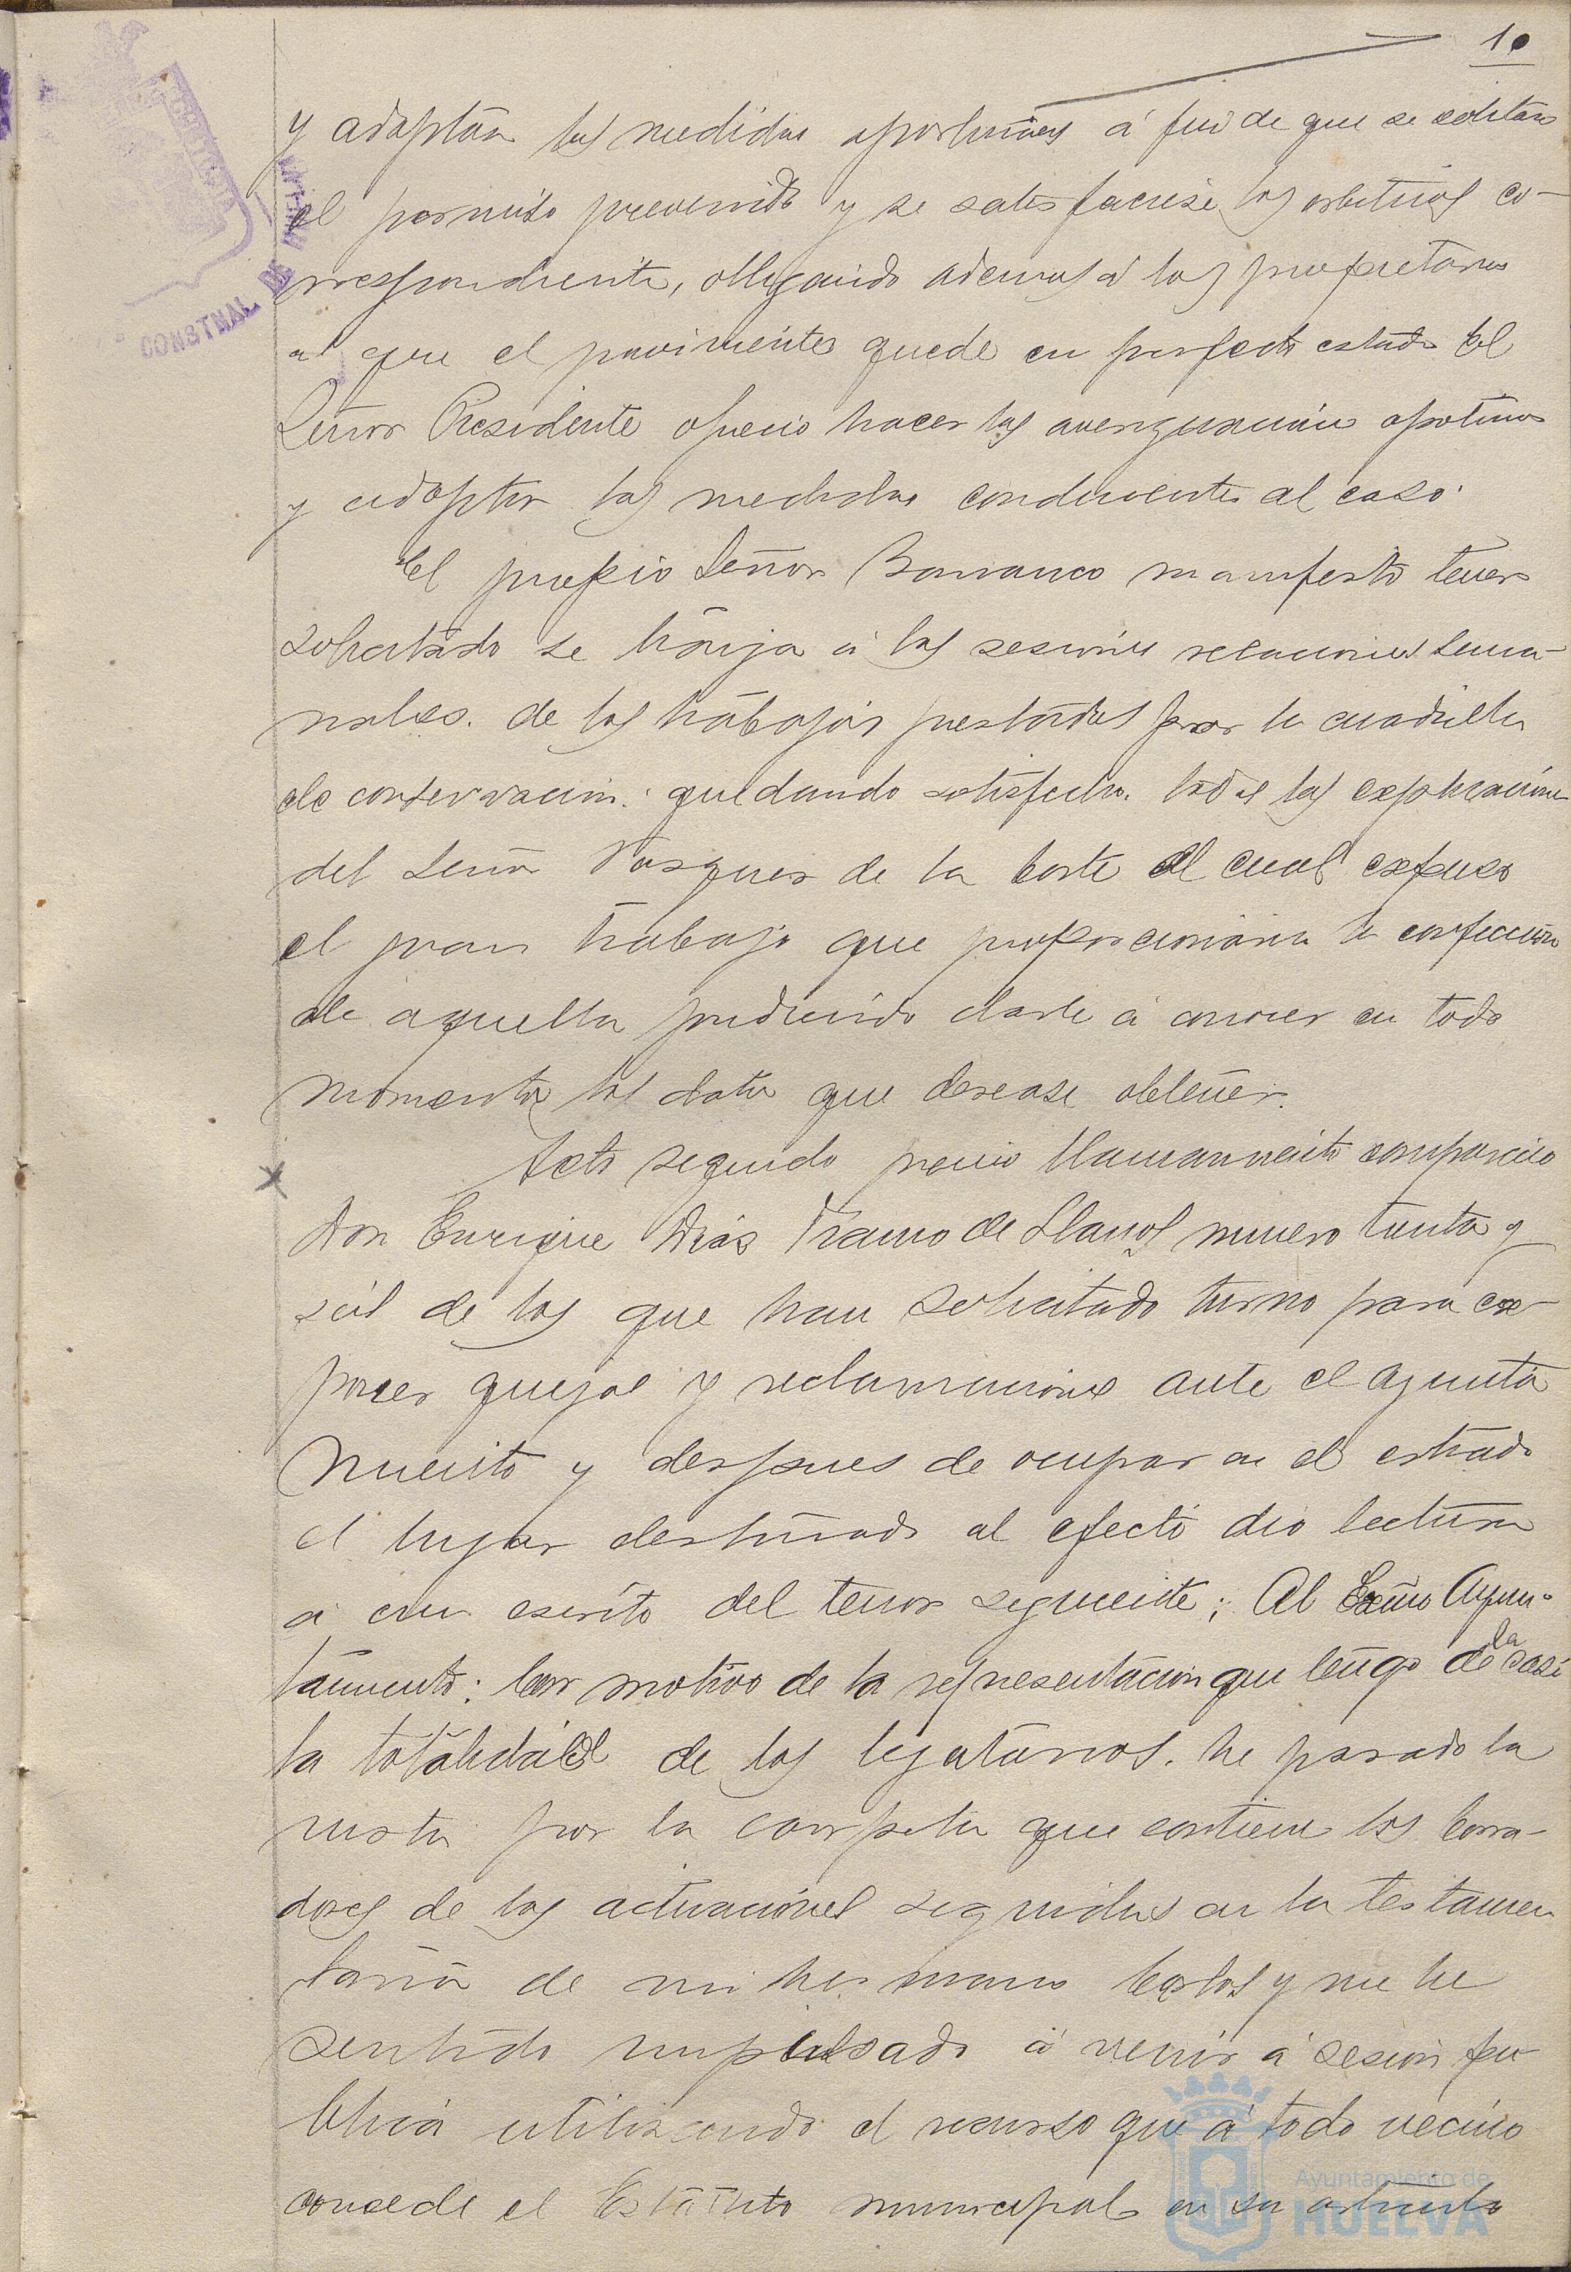 10
y adoptara las medidas oportunas á fin de que se solitara
el permiso prevenido y se satisfaciese los arbitrios co-
rrespondiente, obligando ademas á los propietarios
al que el pavimento quede en perfecto estado El
Señor Presidente ofrecio hacer las averiguacion oportunas
y adoptar las medidas conducentes al caso.
El propio Señor Barranco manifesto tener
solicitado se traiga á las sesiones relaciones sema-
nales de los trabajos prestados por la cuadrilla
de conservacion: quedando satisfecho las explicaciones
del Señor Vazquez de la Corte el cual expuso
el gran trabajo que proporcionaria la confeccion
de aquella pudiendo darle á conocer en todo
momento los datos que desease obtener.
Acto seguido previo llamamiento comparecio
Don Enrique Diáz Franco de Llanos numero treinta y
seis de los que han solicitado turno para ex-
poner quejas y reclamaciones ante el ayunta
miento y despues de ocupar en el estrado
el lugar destinado al efecto dio lectura
a un escrito del tenor siguiente; Al Excmo Ayun-
tamiento: Con motivo de la representacion que tengo de la casi
la totalidad de los legatarios. he pasado la
vista por la carpeta que contiene los borra-
dores de las actuaciones seguidas en la testamen
taria de mi hermano Carlos y me he
sentido impulsado á venir á sesion pu-
blica utilizando el recurso que á todo vecino
concede el Estatuto municipal en su articulo
CONSTNAL DE HUELVA
Ayuntamiento de
HUELVA